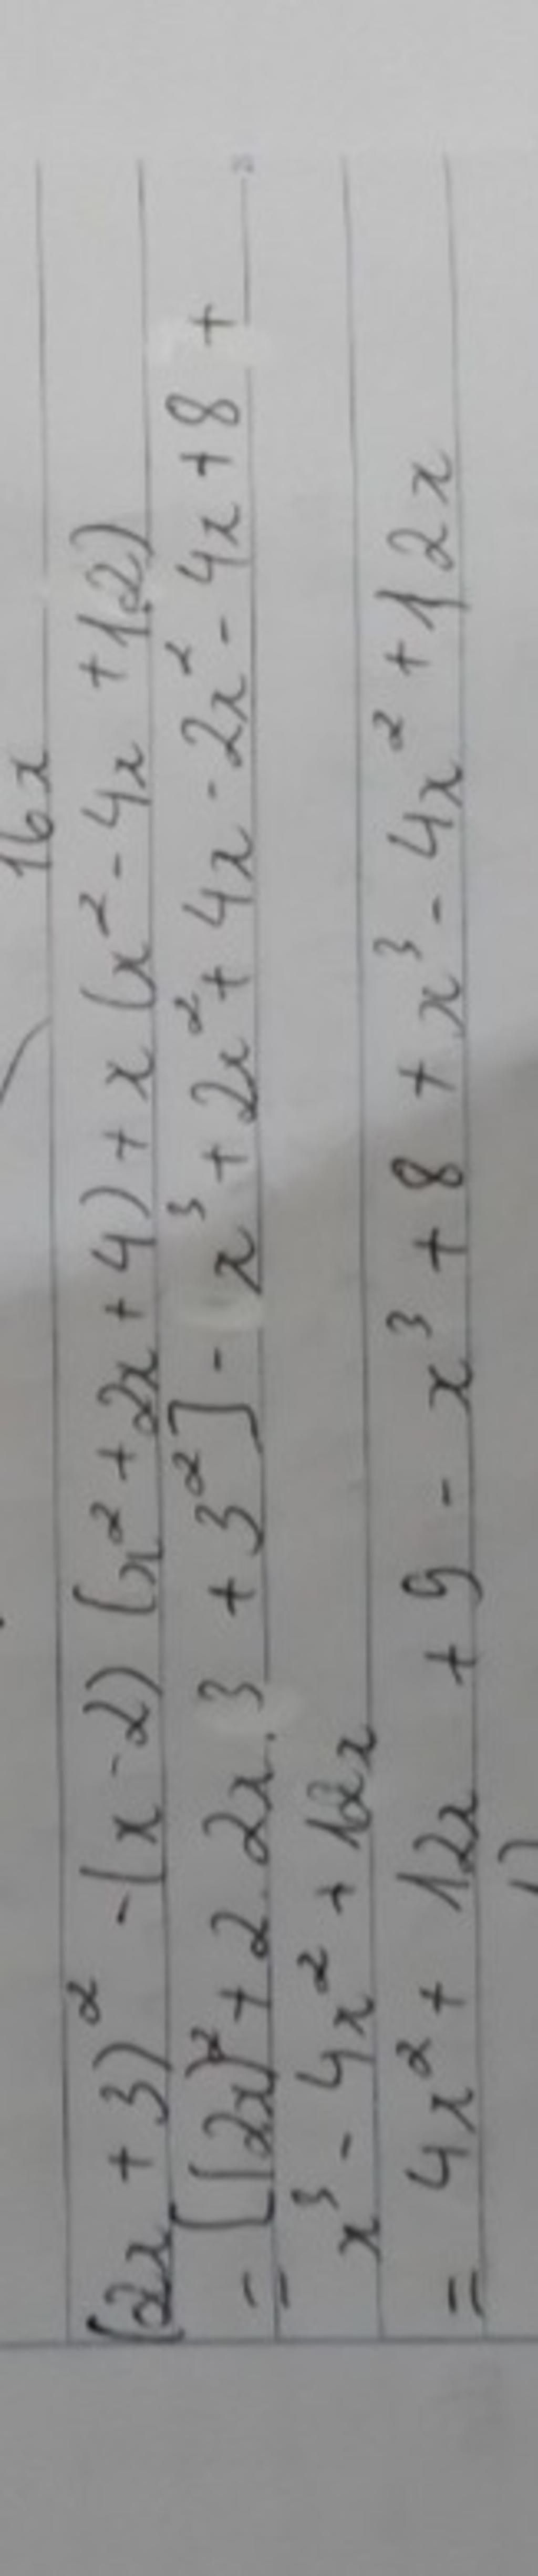 16x
(2x + 3)² - (x - 2) (x² + 2x + 4) + x (x² - 4x + 12)
= [(2x)² + 2. 2x. 3 + 3²] - x³ + 2x² + 4x - 2x² - 4x + 8 +
x³ - 4x² + 12x
= 4x² + 12x + 9 - x³ + 8 + x³ - 4x² + 12x